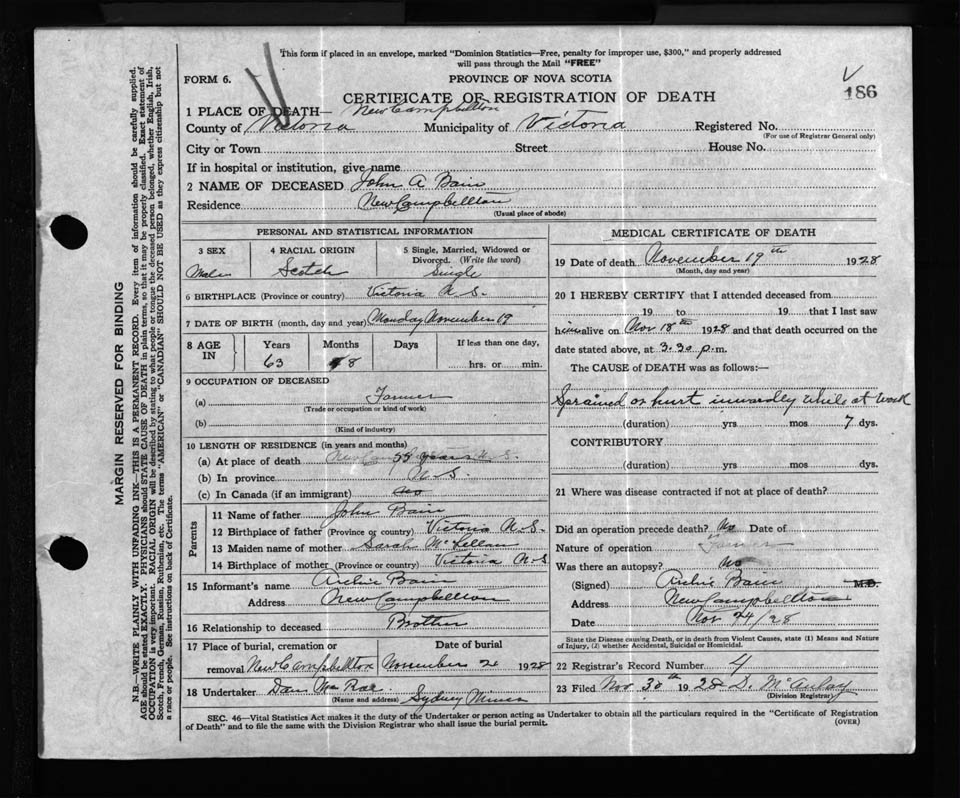 This form if placed in an envelope, marked "Dominion Statistics—Free, penalty for improper use, $300," and properly addressed
will pass through the Mail "FREE"
FORM 6.
PROVINCE OF NOVA SCOTIA
186
CERTIFICATE OF REGISTRATION OF DEATH
1 PLACE OF DEATH— New Campbellton
County of Victoria Municipality of Victoria Registered No.
(For use of Registrar General only)
City or Town Street House No.
If in hospital or institution, give name
2 NAME OF DECEASED John A Bain
Residence New Campbellton
(Usual place of abode)
PERSONAL AND STATISTICAL INFORMATION
3 SEX 4 RACIAL ORIGIN 5 Single, Married, Widowed or
Divorced. (Write the word)
Male Scotch Single
6 BIRTHPLACE (Province or country) Victoria N.S.
7 DATE OF BIRTH (month, day and year) Monday November 19
8 AGE IN Years Months Days If less than one day,
63 8 hrs. or min.
9 OCCUPATION OF DECEASED
(a) Farmer
(Trade or occupation or kind of work)
(b)
(Kind of industry)
10 LENGTH OF RESIDENCE (in years and months)
(a) At place of death years N.S.
(b) In province N.S.
(c) In Canada (if an immigrant)
Parents
11 Name of father John Bain
12 Birthplace of father (Province or country) Victoria N.S.
13 Maiden name of mother Sarah McLellan
14 Birthplace of mother (Province or country) Victoria N.S
15 Informant's name Archie Bain
Address New Campbellton
16 Relationship to deceased Brother
17 Place of burial, cremation or Date of burial
removal New Campbellton November 2 1928
18 Undertaker Dan MacRae
(Name and address) Sydney Mines
MEDICAL CERTIFICATE OF DEATH
19 Date of death November 19th 1928
(Month, day and year)
20 I HEREBY CERTIFY that I attended deceased from
19 to 19 that I last saw
him alive on Nov 18th 1928 and that death occurred on
date stated above, at 3.30 p.m.
The CAUSE of DEATH was as follows:—
Sprained or hurt inwardly while at work
(duration) yrs mos 7 dys.
CONTRIBUTORY
(duration) yrs. mos. dys.
21 Where was disease contracted if not at place of death?
Did an operation precede death? No Date of
Nature of operation Farmer
Was there an autopsy? No
(Signed) Archie Bain M.D.
Address New Campbellton
Date Nov 24/28
State the Disease causing Death, or in death from Violent Causes, state (1) Means and Nature
of Injury, (2) whether Accidental, Suicidal or Homicidal.
22 Registrar's Record Number 4
23 Filed Nov 30th 1928 D. McAulay
(Division Registrar)
SEC. 46—Vital Statistics Act makes it the duty of the Undertaker or person acting as Undertaker to obtain all the particulars required in the "Certificate of Registration
of Death" and to file the same with the Division Registrar who shall issue the burial permit.
(OVER)
MARGIN RESERVED FOR BINDING
N.B.—WRITE PLAINLY WITH UNFADING INK—THIS IS A PERMANENT RECORD. Every item of information should be carefully supplied.
AGE should be stated EXACTLY. PHYSICIANS should STATE CAUSE OF DEATH in plain terms, so that it may be properly classified. Exact statement of
OCCUPATION is very important. RACIAL ORIGIN will be described by stating to what people or tongue the deceased person belonged, whether English, Irish,
Scotch, French, German, Russian, Ruthenian, etc. The terms "AMERICAN" or "CANADIAN" SHOULD NOT BE USED as they express citizenship but not
a race or people. See instructions on back of Certificate.